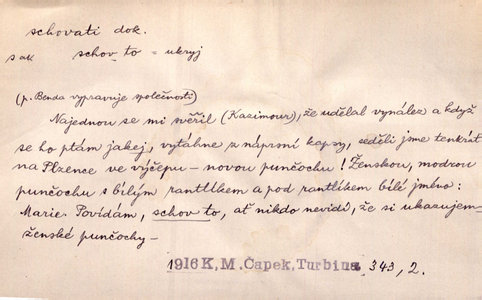 schovati dok.
s ak schov to = ukryj
(p. Benda vypravuje společnosti)
Najednou se mi svěřil (Kazimour), že udělal vynález a když
se ho ptám jakej, vytáhne z náprsní kapsy, seděli jsme tenkrát
na Plzence ve výčepu – novou punčochu! Ženskou, modrou
punčochu s bílým rantlíkem a pod rantlíkem bílé jméno:
Marie. Povídám, schov to, ať nikdo nevidí, že si ukazujem
ženské punčochy –
1916 K. M. Čapek, Turbina 343, 2.